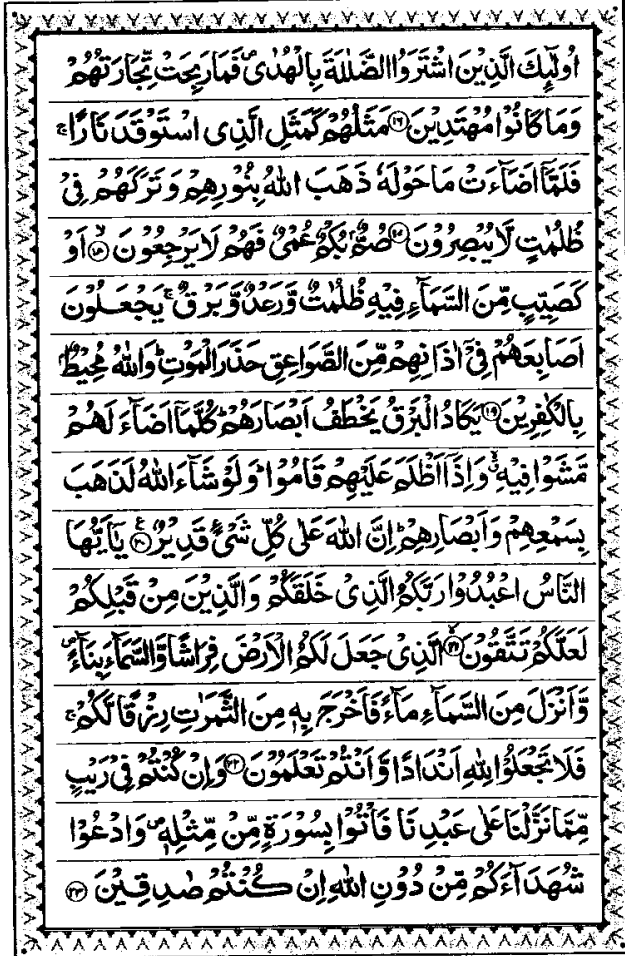 اُولٰٓئِكَ الَّذِيْنَ اشْتَرَوُا الضَّلٰلَةَ بِالْهُدٰى ۪ فَمَا رَبِحَتْ تِّجَارَتُهُمْ
وَمَا كَانُوْا مُهْتَدِيْنَ ﴿۱۶﴾ مَثَلُهُمْ كَمَثَلِ الَّذِى اسْتَوْقَدَ نَارًا ۚ
فَلَمَّآ اَضَآءَتْ مَا حَوْلَهٗ ذَهَبَ اللّٰهُ بِنُوْرِهِمْ وَتَرَكَهُمْ فِىْ
ظُلُمٰتٍ لَّا يُبْصِرُوْنَ ﴿۱۷﴾ صُمٌّۢ بُكْمٌ عُمْىٌ فَهُمْ لَا يَرْجِعُوْنَ ۙ﴿۱۸﴾ اَوْ
كَصَيِّبٍ مِّنَ السَّمَآءِ فِيْهِ ظُلُمٰتٌ وَّرَعْدٌ وَّبَرْقٌ ۚ يَجْعَلُوْنَ
اَصَابِعَهُمْ فِىْٓ اٰذَانِهِمْ مِّنَ الصَّوَاعِقِ حَذَرَ الْمَوْتِ ؕ وَاللّٰهُ مُحِيْطٌۢ
بِالْكٰفِرِيْنَ ﴿۱۹﴾ يَكَادُ الْبَرْقُ يَخْطَفُ اَبْصَارَهُمْ ؕ كُلَّمَآ اَضَآءَ لَهُمْ
مَّشَوْا فِيْهِ ۙ وَاِذَآ اَظْلَمَ عَلَيْهِمْ قَامُوْا ؕ وَلَوْ شَآءَ اللّٰهُ لَذَهَبَ
بِسَمْعِهِمْ وَاَبْصَارِهِمْ ؕ اِنَّ اللّٰهَ عَلٰى كُلِّ شَىْءٍ قَدِيْرٌ ﴿۲۰﴾ يٰٓاَيُّهَا
النَّاسُ اعْبُدُوْا رَبَّكُمُ الَّذِىْ خَلَقَكُمْ وَالَّذِيْنَ مِنْ قَبْلِكُمْ
لَعَلَّكُمْ تَتَّقُوْنَ ۙ﴿۲۱﴾ الَّذِىْ جَعَلَ لَكُمُ الْاَرْضَ فِرَاشًا وَّالسَّمَآءَ بِنَآءً ۪
وَّاَنْزَلَ مِنَ السَّمَآءِ مَآءً فَاَخْرَجَ بِهٖ مِنَ الثَّمَرٰتِ رِزْقًا لَّكُمْ ۚ
فَلَا تَجْعَلُوْا لِلّٰهِ اَنْدَادًا وَّاَنْتُمْ تَعْلَمُوْنَ ﴿۲۲﴾ وَاِنْ كُنْتُمْ فِىْ رَيْبٍ
مِّمَّا نَزَّلْنَا عَلٰى عَبْدِنَا فَاْتُوْا بِسُوْرَةٍ مِّنْ مِّثْلِهٖ ۪ وَادْعُوْا
شُهَدَآءَكُمْ مِّنْ دُوْنِ اللّٰهِ اِنْ كُنْتُمْ صٰدِقِيْنَ ﴿۲۳﴾